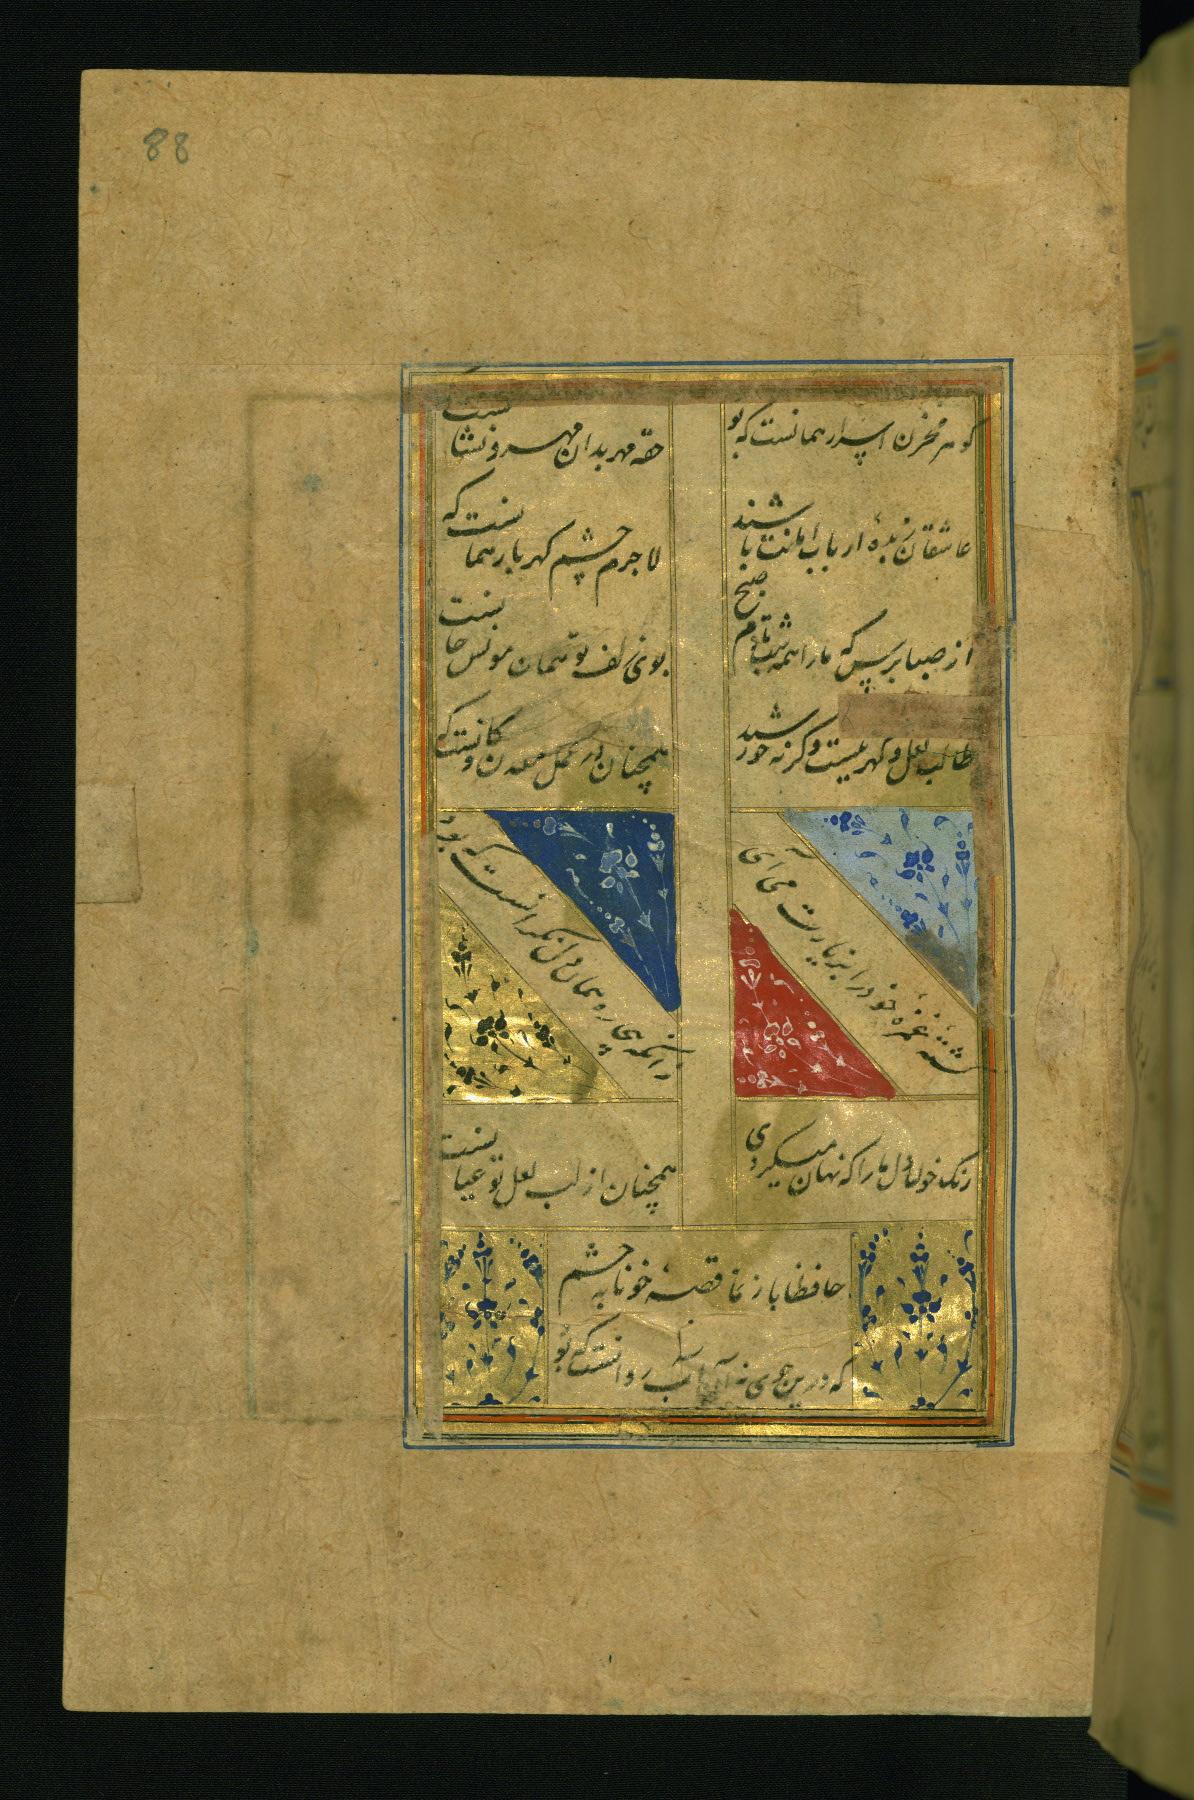 88
کوهر مخزن اسرار همانست که بو
حقه مهر بدان مهر و نشانست
عاشقان زبدهٔ ارباب امانت باشند
لا جرم چشم کهر بار همانست که
از صبا پرس که مارا همه شب تا دم صبح
بوی زلف تو همان مونس جانست
طالب لعل و کهر نیست وکرنه خورشید
همچنان در عمل معدن و کانست که
کشتهٔ غمزه خود را بزیارت می آی
زانکه بیچاره همان دل نکرانست که بود
رنک خون دل ما را که نهان میکردی
همچنان از لب لعل تو عیانست
حافظا باز نما قصهٔ خونابه چشم
که درین جوی نه آن آب روانست که بو